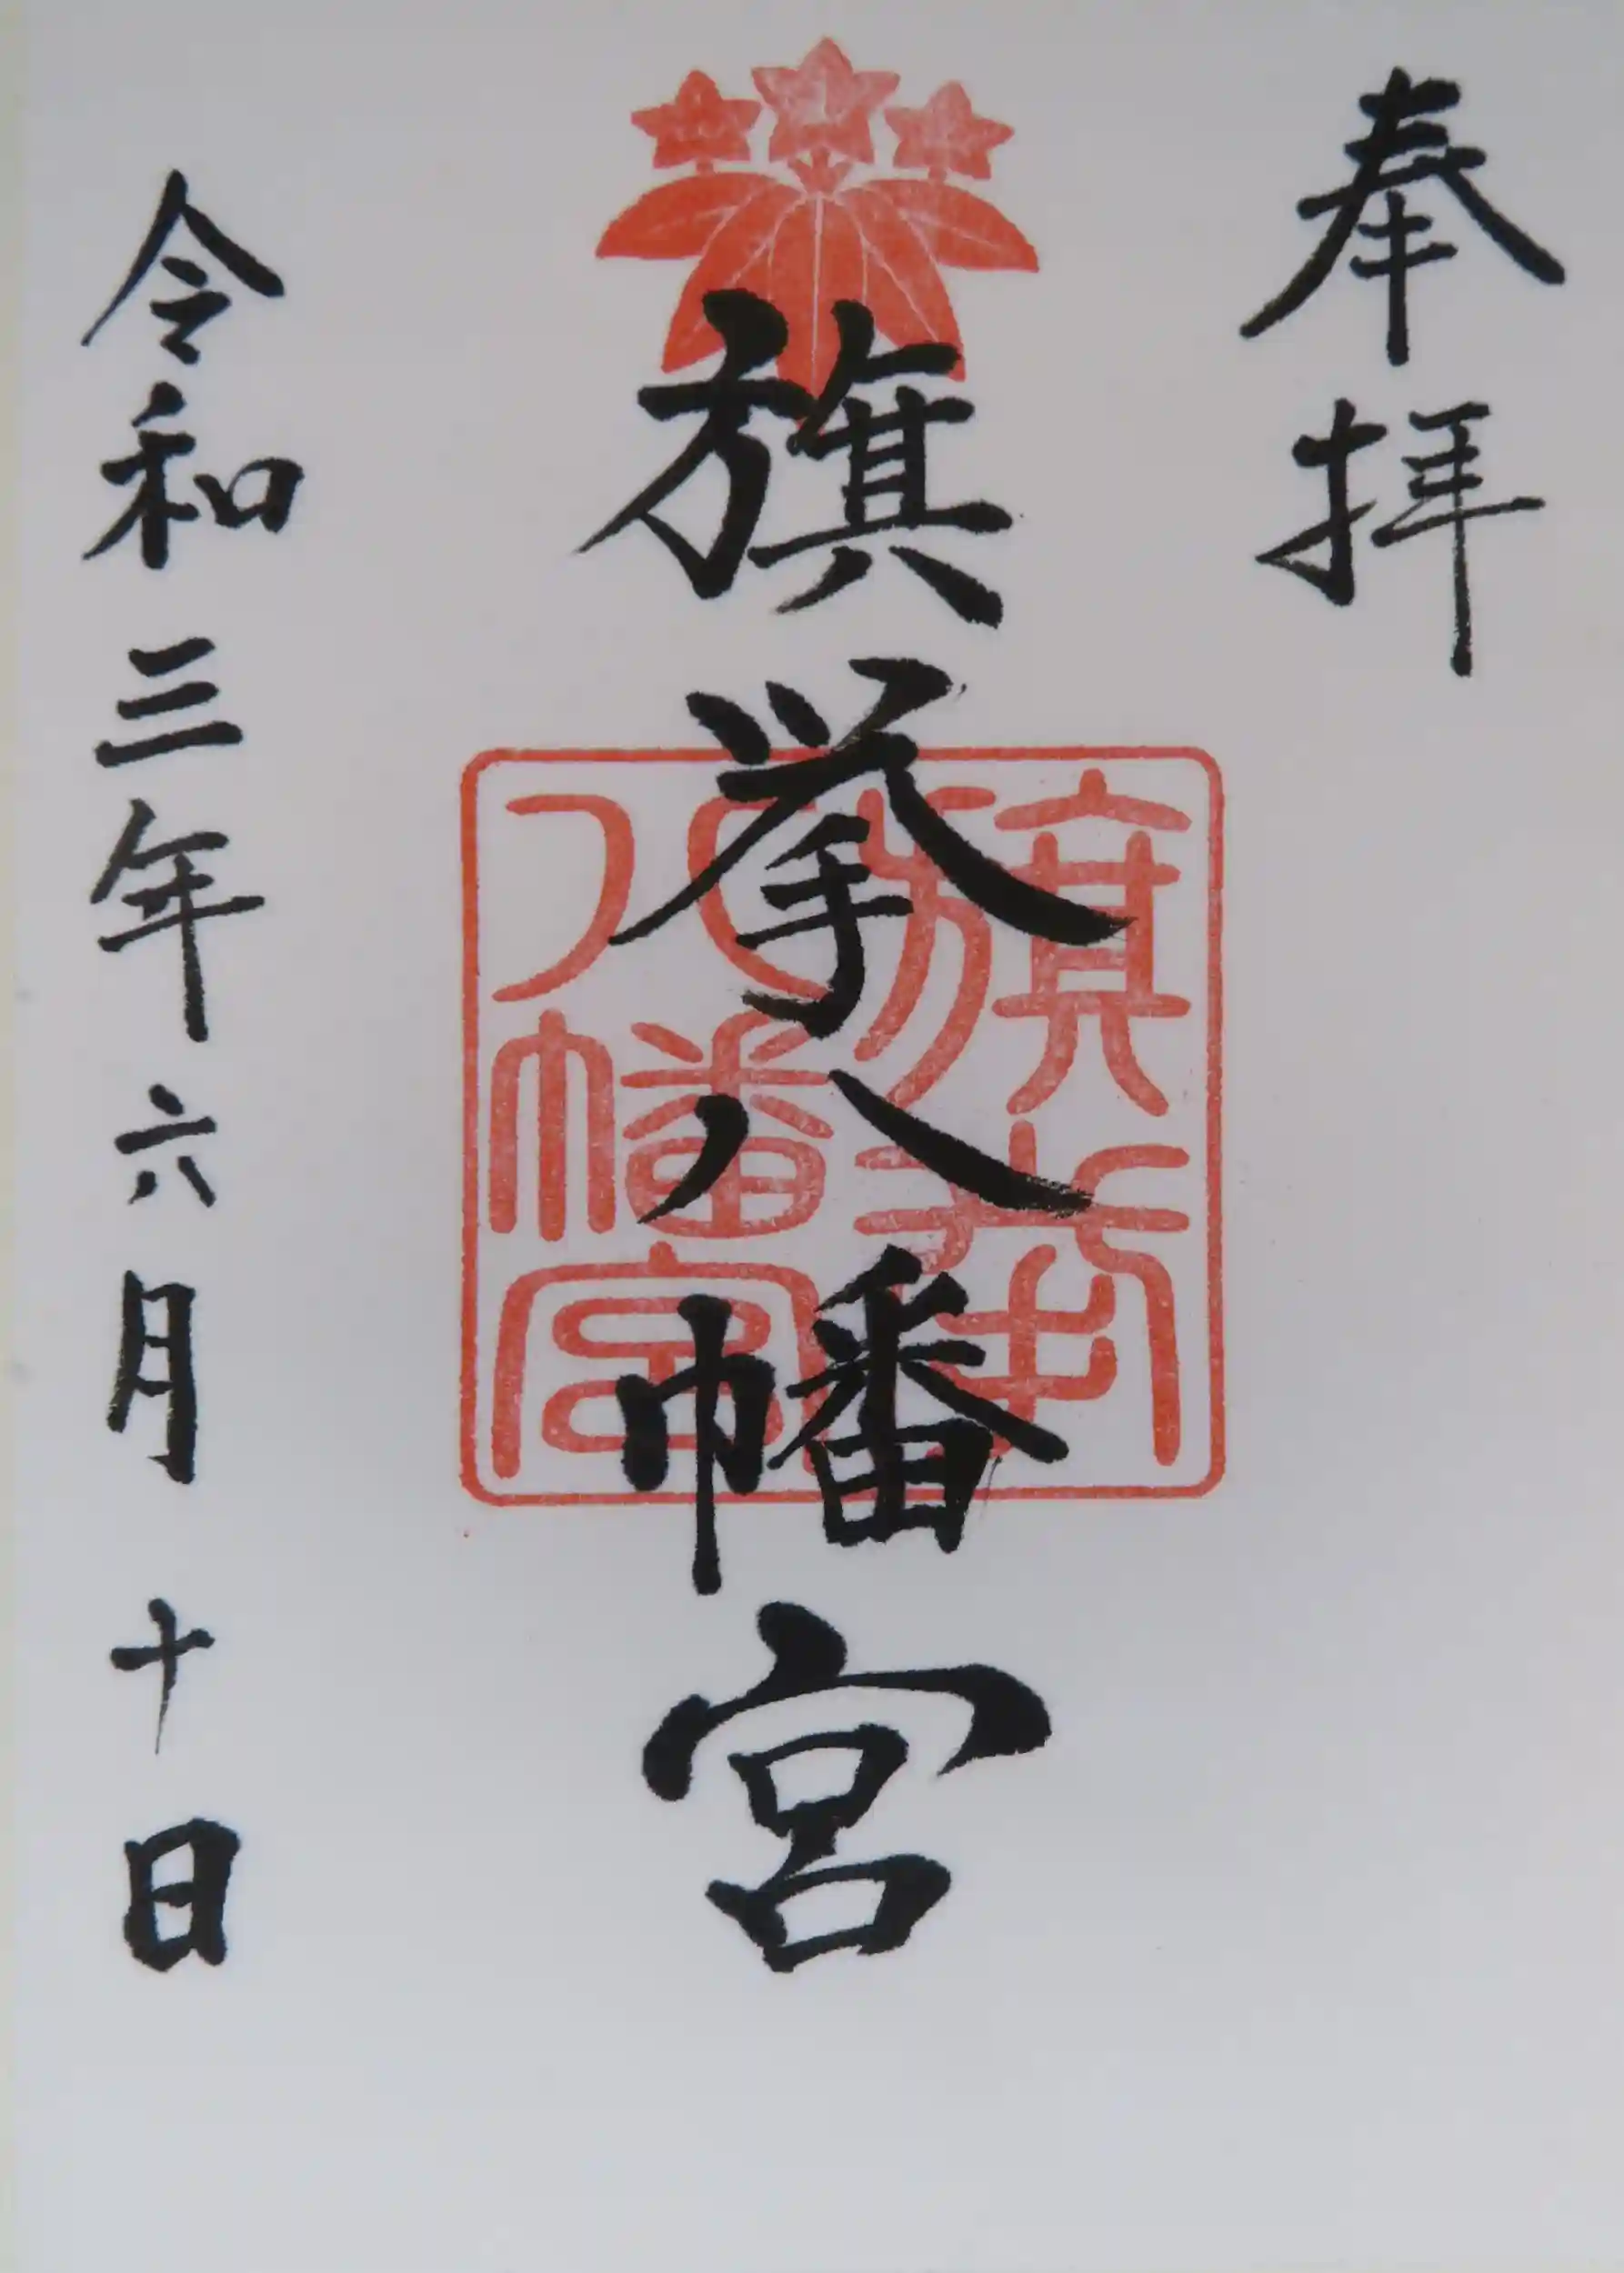 奉拝
旗挙八幡宮
旗挙八幡宮
令和三年六月十日